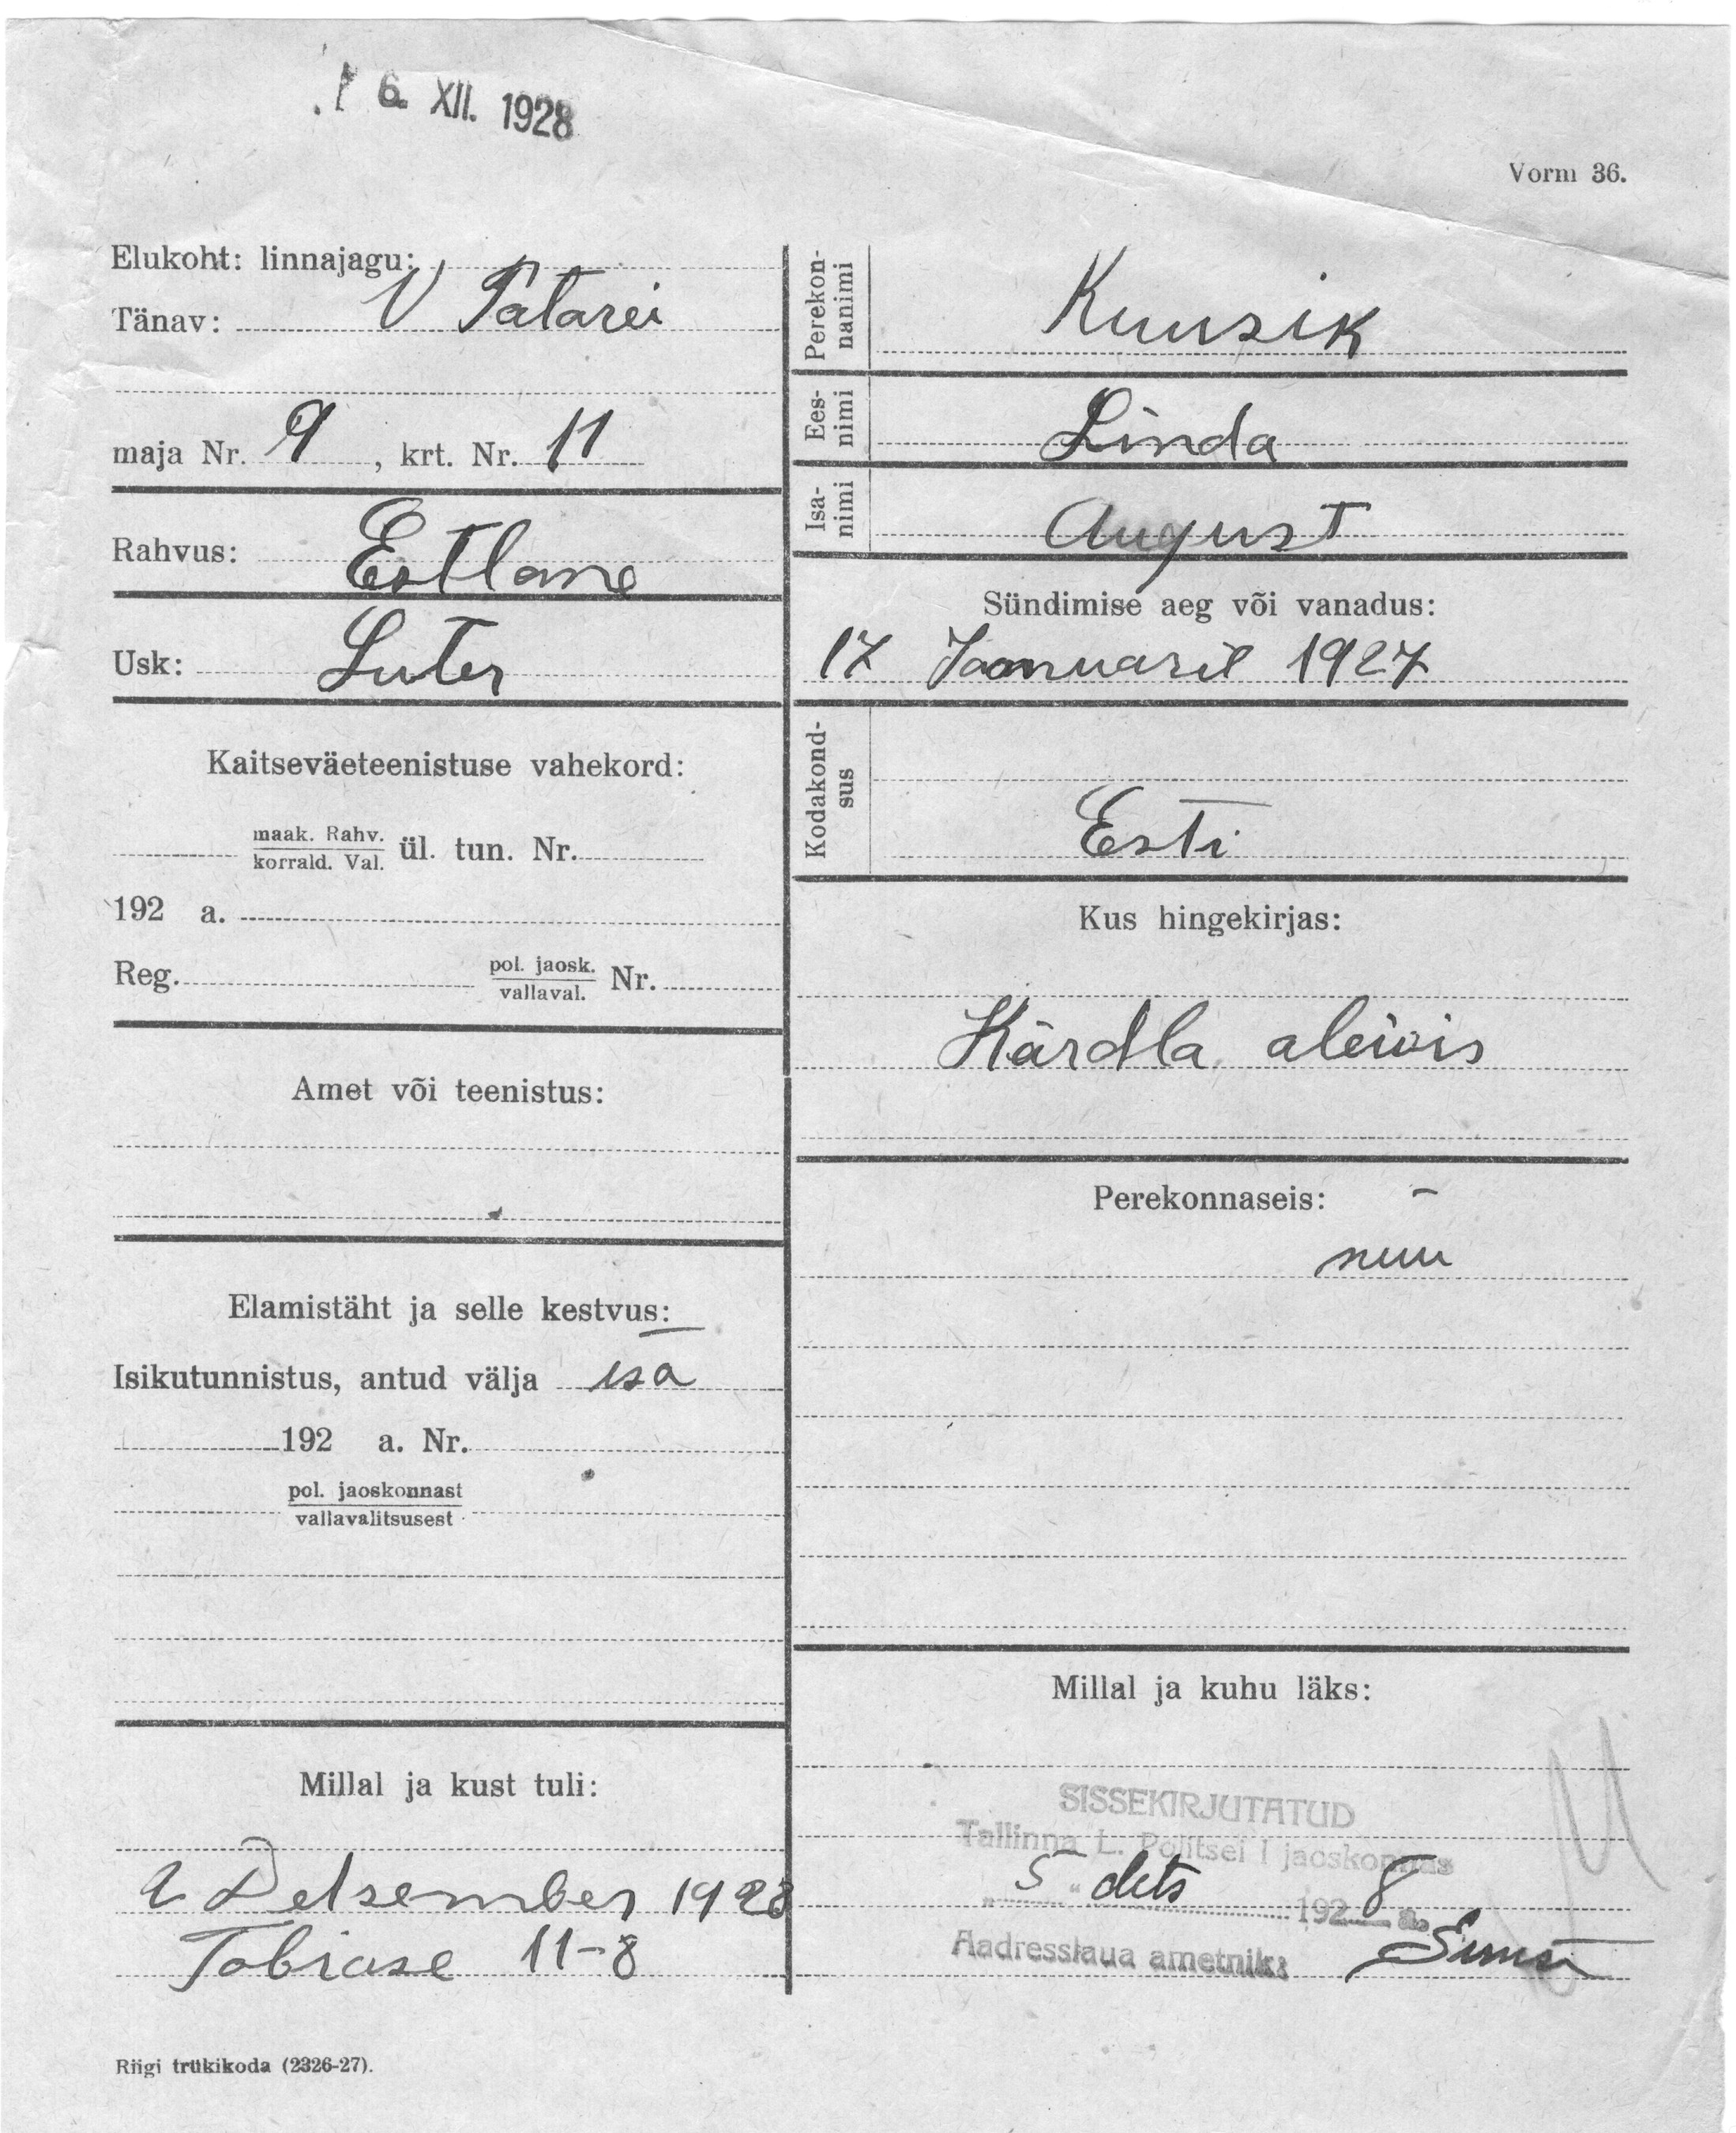 6. XII. 1928
Vorm 36.
Elukoht: linnajagu:
Tänav: V Patarei
maja Nr. 9, krt. Nr. 11
Rahvus: Estlane
Usk: Luter
Kaitseväeteenistuse vahekord:
maak. Rahv.
korrald. Val. ül. tun. Nr.
192 a.
Reg. pol. jaosk.
vallaval. Nr.
Amet või teenistus:
Elamistäht ja selle kestvus:
Isikutunnistus, antud välja isa
192 a. Nr.
pol. jaoskonnast
vallavalitsusest
Millal ja kust tuli:
2 Detsember 1928
Tobiase 11-8
Perekon-
nanimi Kuusik
Ees-
nimi Linda
Isa-
nimi August
Sündimise aeg või vanadus:
17 Jaanuaril 1927
Kodakond-
sus Esti
Kus hingekirjas:
Kärdla aleivis
Perekonnaseis: -
Millal ja kuhu läks:
SISSEKIRJUTATUD
Tallinna L. Politsei I jaoskonnas
" 5 " dets 192 8 a.
Aadresslaua ametnik:
Riigi trükikoda (2326-27).